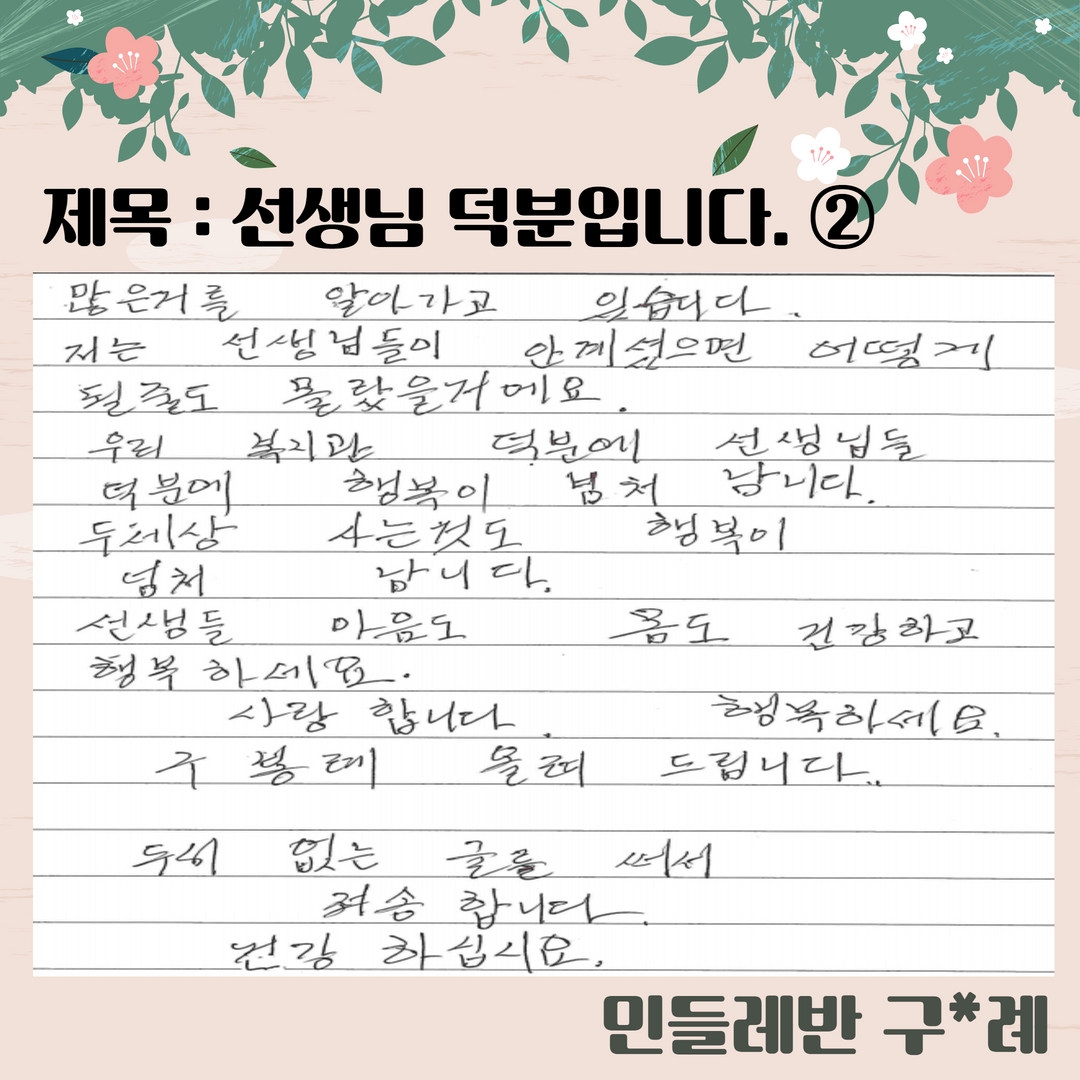 제목 : 선생님 덕분입니다. ②
많은거를 알아가고 있습니다.
저는 선생님들이 안계셨으면 어떻게
될줄도 몰랐을거에요.
우리 복지관 덕분에 선생님들
덕분에 행복이 넘처 남니다.
두세상 사는것도 행복이
넘처 남니다.
선생들 마음도 몸도 건강하고
행복 하세요.
사랑 합니다. 행복하세요.
구 봉례 올려 드립니다..
두서 없는 글를 써서
죄송 합니다.
건강 하십시요.
민들레반 구*례